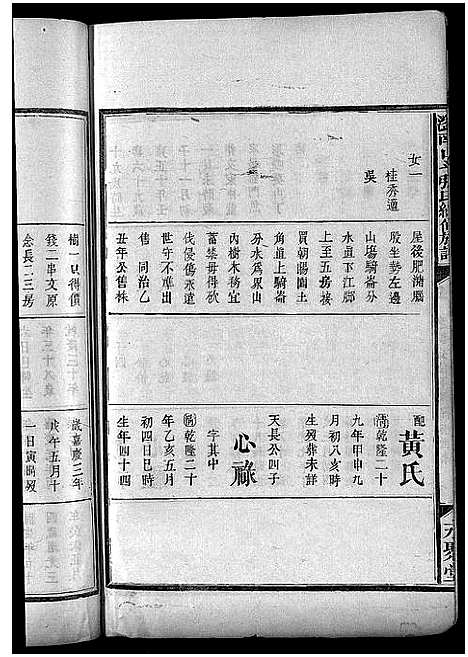 女一
桂秀適
吳
屋後肥潴塘
殷坐勢左邊
山塲騎崙分
水直下江廊
上至五房接
買朝陽園土
角直上騎崙
分水爲界山
內樹木務宜
蓄禁毋得砍
伐侵僭永遠
世守不準出
售 同治乙
丑年公售株
樹一具得價
錢二串文原
念長二三房
配
黃氏
清乾隆二十
九年甲申九
月初八亥時
生歿葬未詳
天長公四子
心祿
字其中
清乾隆二十
年乙亥五月
初四日巳時
生年四十四
歲嘉慶三年
戊午五月十
一日寅時歿